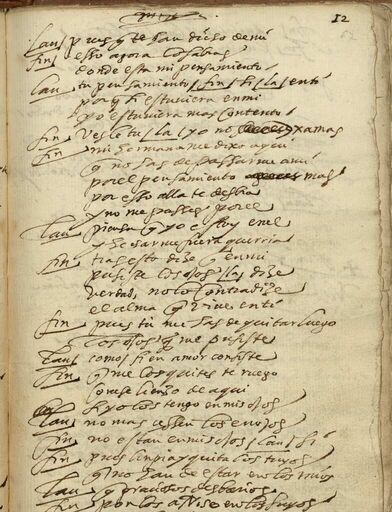 12
lau pues q̃ te han dicho de mi
fin esso agora lo sabras
donde esta mi pensamiento
lau tu pensamiento / fin si / la senti
por q̃ si estuviera en mi
yo estuviera mas contento
fin vesle tu / la / yo no jamas
fin mi hermana me dixo aqui
q̃ no has de passar me a mi
por el pensamiento mas
por esso alla te desbia
y no me passes por el
lau piensa q̃ yo estoy en el
y echar me fuera querria
fin tras esto dize q̃ en mi
pusiste los ojos / la dize
verdad, no lo contradize
el alma q̃ vive en ti
fin pues tu me has de quitar luego
los ojos q̃ me pusiste
lau como si en amor consiste
fin q̃ me los quites te ruego
con ese lienço de aqui
si yo los tengo en mis ojos
lau no mas cessen los enojos
fin no estan en mis ojos / lau si
fin pues limpia y quita los tuyos
q̃ no han de estar en los mios
lau q̃ graciosos desbarios
fin ponlos a Nise en los suyos